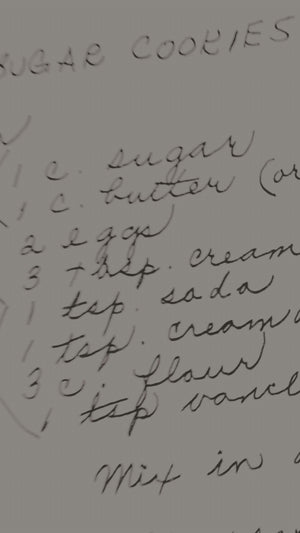 SUGAR COOKIES
1 c. sugar
1 c. butter (or
2 eggs
3 tbsp. cream
1 tsp. soda
1 tsp. cream
3 c. flour
1 tsp
Mix in